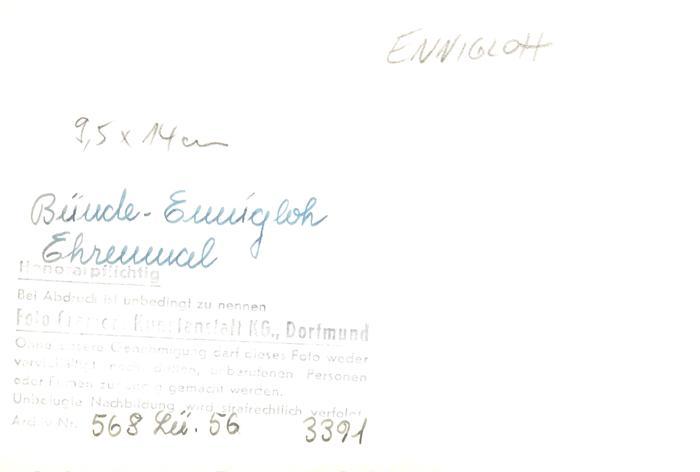 ENNIGLOH
9,5 x 14 cm
Bünde-Ennigloh
Ehrenmal
Honorarpflichtig
Bei Abdruck ist unbedingt zu nennen
Foto Cramers Kunstanstalt KG., Dortmund
Ohne unsere Genehmigung darf dieses Foto weder
vervielfältigt noch dritten, unberufenen Personen
oder Firmen zugängig gemacht werden.
Unbefugte Nachbildung wird strafrechtlich verfolgt.
Archiv Nr. 568 Lü. 56 3391